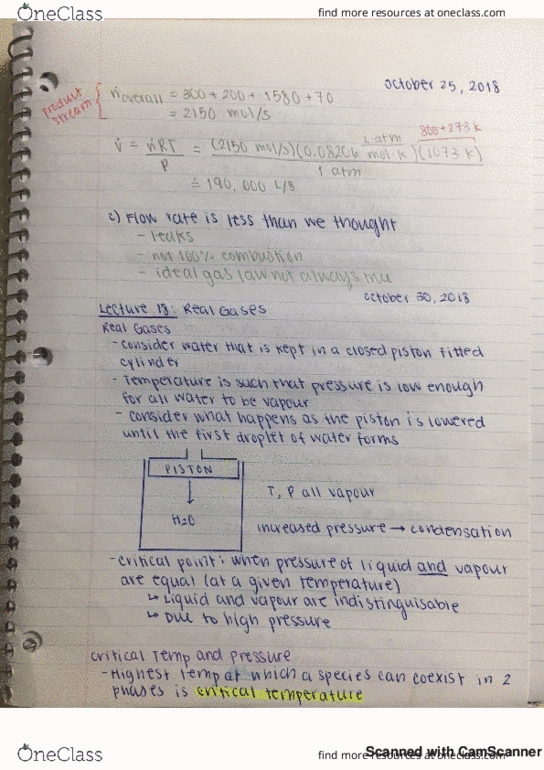 OneClass
find more resources at oneclass.com
October 25, 2018
product stream
ṅoverall = 300 + 200 + 1580 + 70
= 2150 mol/s
800+273 K
v̇ = ṅRT / P = (2150 mol/s)(0.08206 L·atm / mol·K)(1073 K) / 1 atm
≐ 190,000 L/s
c) Flow rate is less than we thought
- leaks
- not 100% combustion
- ideal gas law not always true
October 30, 2018
Lecture 18: Real Gases
Real Gases
- consider water that is kept in a closed piston fitted
cylinder
- Temperature is such that pressure is low enough
for all water to be vapour
- consider what happens as the piston is lowered
until the first droplet of water forms
PISTON
H2O
T, P all vapour
increased pressure → condensation
- critical point: when pressure of liquid and vapour
are equal (at a given temperature)
↳ Liquid and vapour are indistinguisable
↳ Due to high pressure
critical Temp and Pressure
- Highest temp at which a species can coexist in 2
phases is critical temperature
OneClass
find more resources at oneclass.com
Scanned with CamScanner